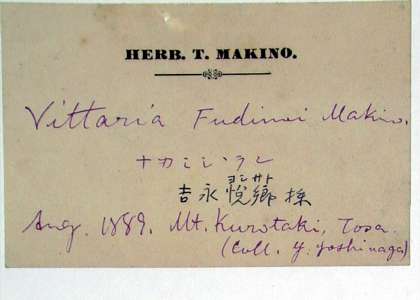 HERB. T. MAKINO.
Vittaria Fudinoi Makino.
ナカミシシラン
ヨシサト
吉永悦郷採
Aug. 1889. Mt. Kurotaki, Tosa.
(Coll. Y. Yoshinaga)